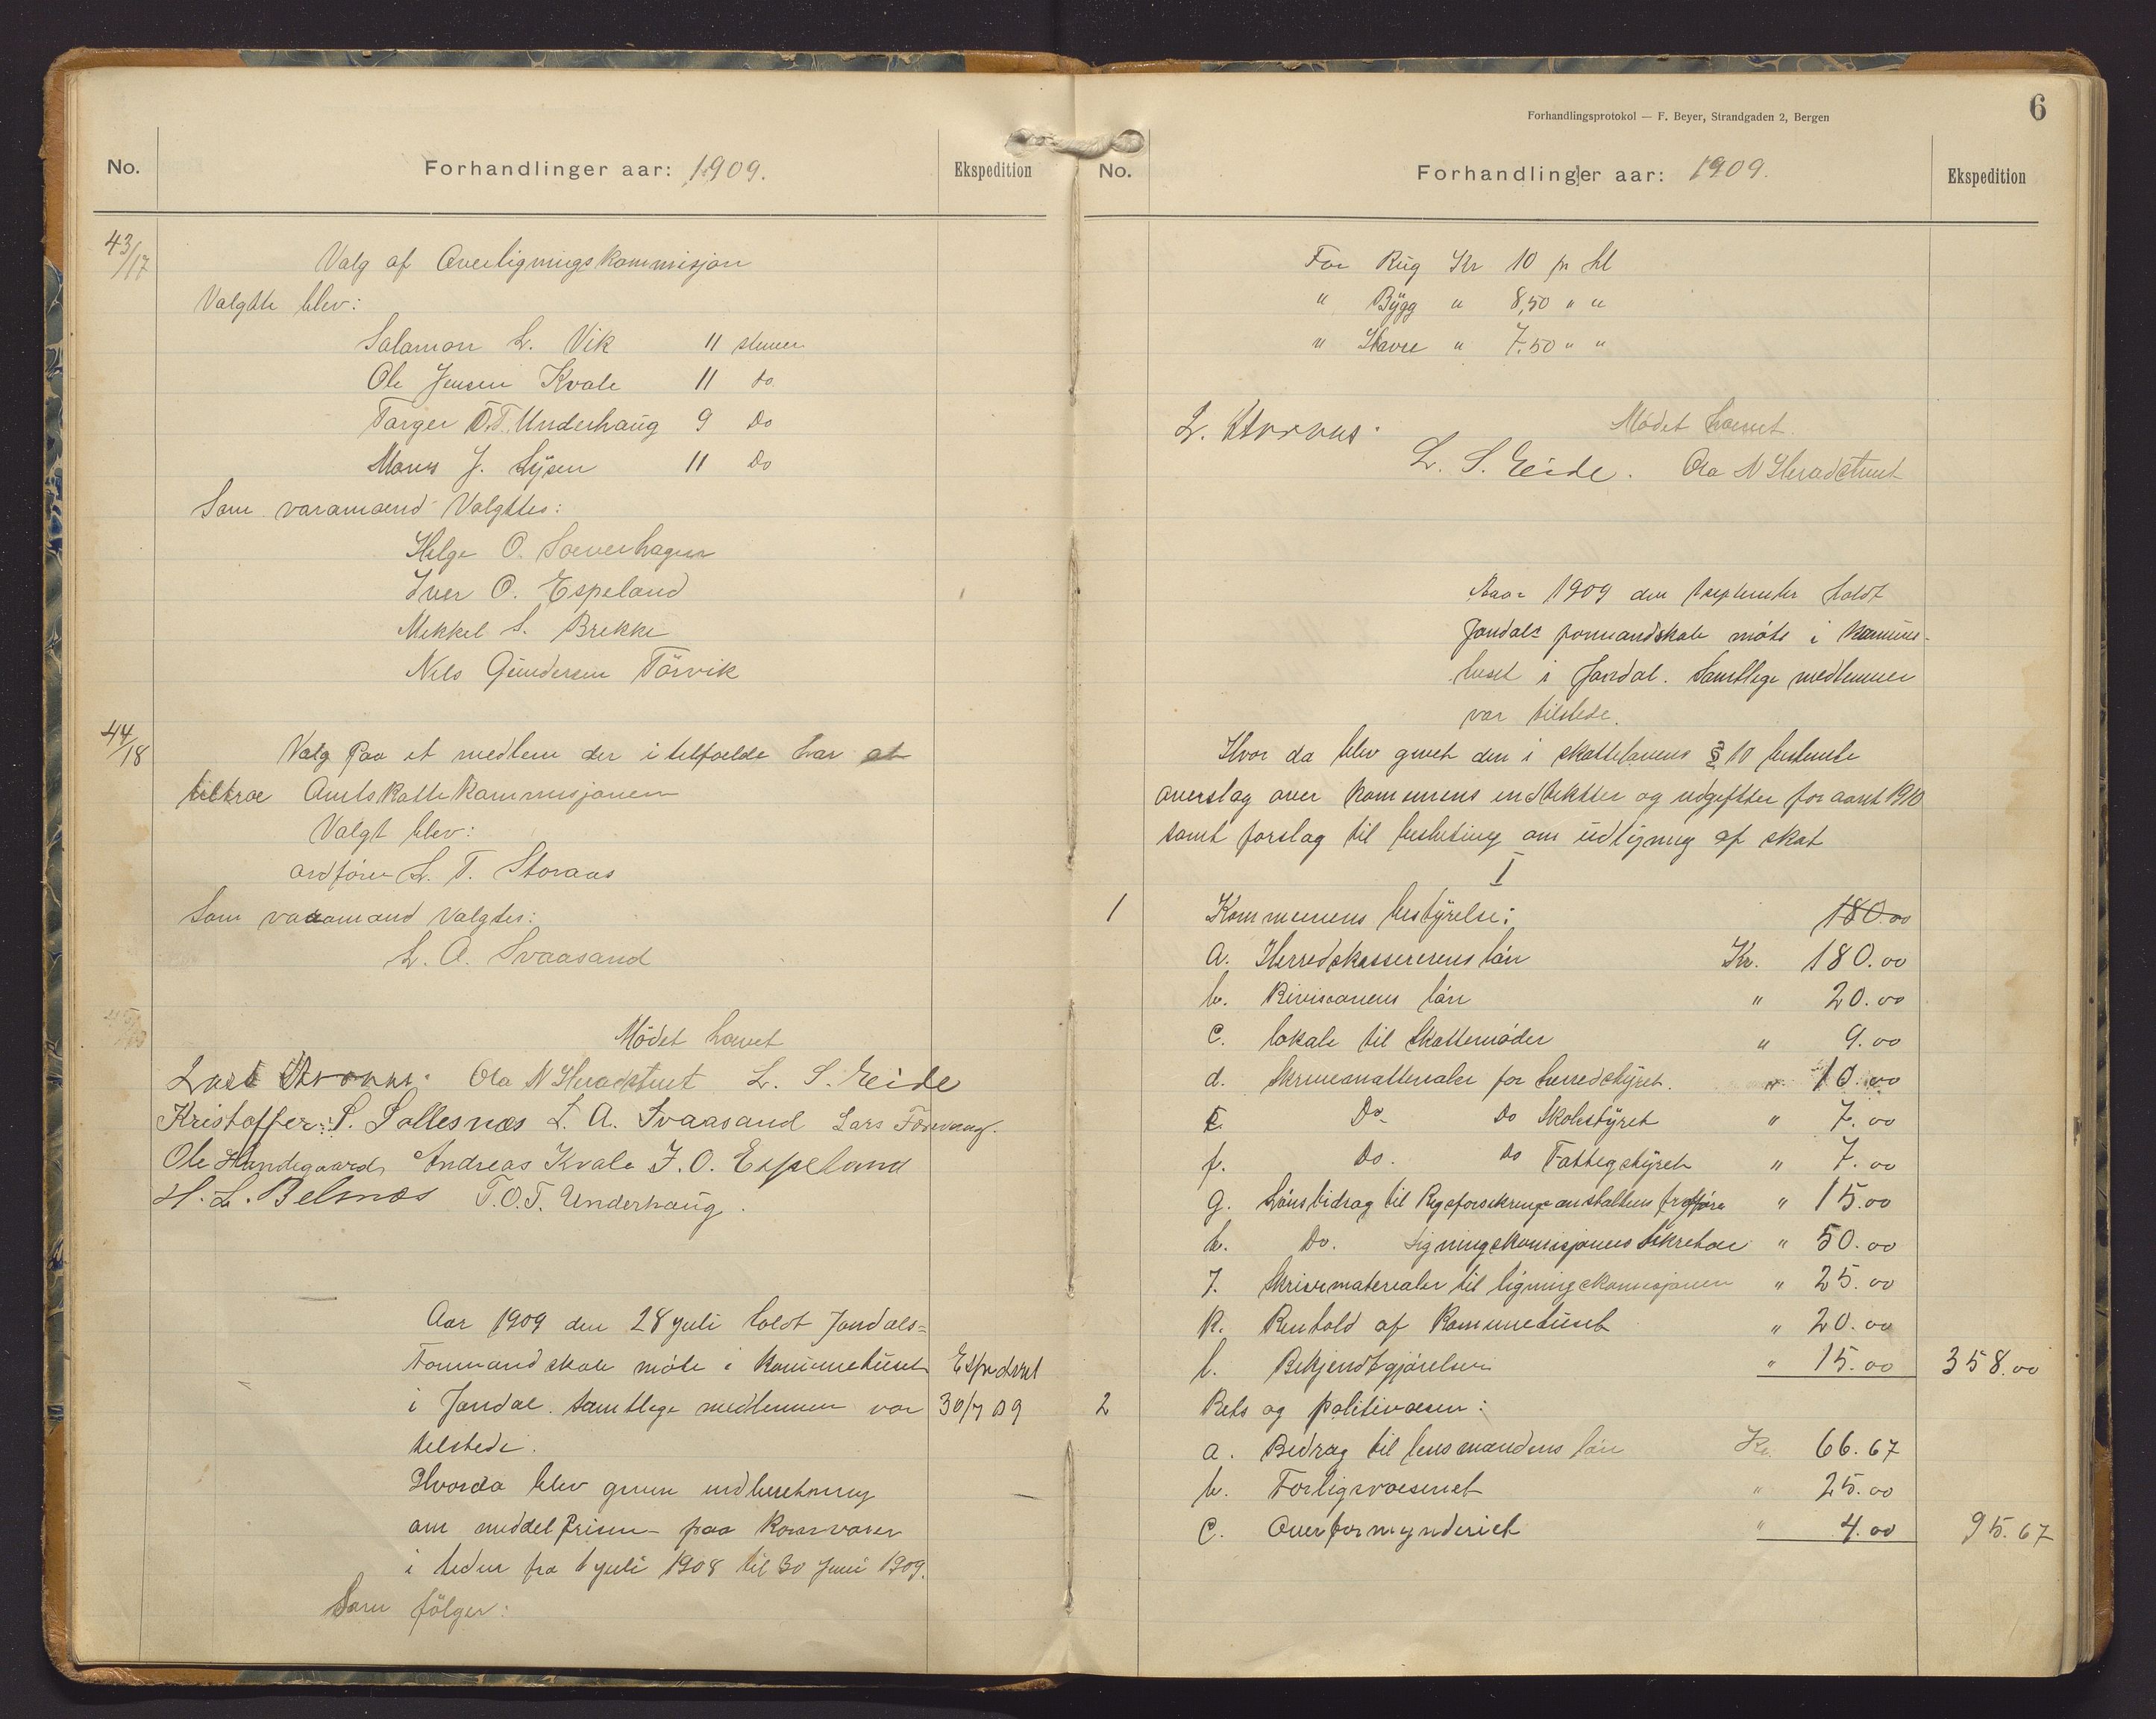 No.
Forhandlinger aar: 1909.
Ekspedition
43/17
Valg af Overligningskommisjon
Valgtte blev:
Salamon L. Vik 11 stemmer
Ole Jensen Kvale 11 do
Torger O.T. Underhaug 9 Do
Mons J. Lysen 11 Do
Som varamænd Valgttes:
Helge O. Sæverhagen
Iver O. Espeland
Mikkel S. Brekke
Nils Gundersen Törvik
44/18
Valg paa et medlem der i tilfælde har at
tiltræ Amtskattekommisjonen
Valgt blev:
ordförer L. T. Storaas
Som varamand Valgtes:
L. A. Svaasand
Mödet hævet
Lars Storaas. Ola N Heradstveit L. S. Eide
Kristoffer S. Sollesnes L. A. Svaasand Lars
Ole Handegaard Andreas Kvale I. O. Espeland
H. L. Belsnes T.O.T. Underhaug.
Aar 1909 den 28 juli holdt Jondals-
Formandskab möte i Kommunehuset
i Jondal. Samtlege medlemmer var
telstede.
Ekspederet
30/7 09
Hvorda blev given indberetning
om middelprisen paa kornvarer
i tiden fra 1 juli 1908 til 30 Juni 1909.
Som fölger:
Forhandlingsprotokol — F. Beyer, Strandgaden 2, Bergen
6
No.
Forhandlinger aar: 1909.
Ekspedition
For Rug Kr 10 pr hl
" Bygg " 8,50 " "
" Havre " 7.50 " "
Mödet hævet.
L. Storaas.
L. S. Eide. Ola N Heradstveit
Aar 1909 den september holdt
Jondals formandskab möte i kommune-
huset i Jondal. Samtlege medlemmer
var tilstede.
Hvor da blev givet den i skattelovens § 10 bestemte
overslag over kommunens indtektter og udgiftter for aaret 1910
samt forslag til beslutning om udligning af skat
I
1
Kommunens bestyrelse: 180.00
a. Herredskassererens lön Kr. 180.00
b. Revisorens lön " 20.00
c. lokale til Skattemöder " 9.00
d. Skrivematterialer for herredstyret. " 10.00
e. Do. Do Skolestyret " 7.00
f. Do. Do Fattegstyret " 7.00
g. Lönsbidrag til Rygsforsikringsanstaltens " 15.00
h. Do. Ligningskomisjonens Sekretær " 50.00
J. Skrivematerialer til ligningskomisjonen " 25.00
k. Renhold af Kommunehuset " 20.00
l. Bekjendtgjörelser " 15.00 358.00
2
Rets og politivæsen:
a. Bidrag til lensmandens lön Kr. 66.67
b. Forligsvæsenet " 25.00
c. Overformynderiet " 4.00 95.67